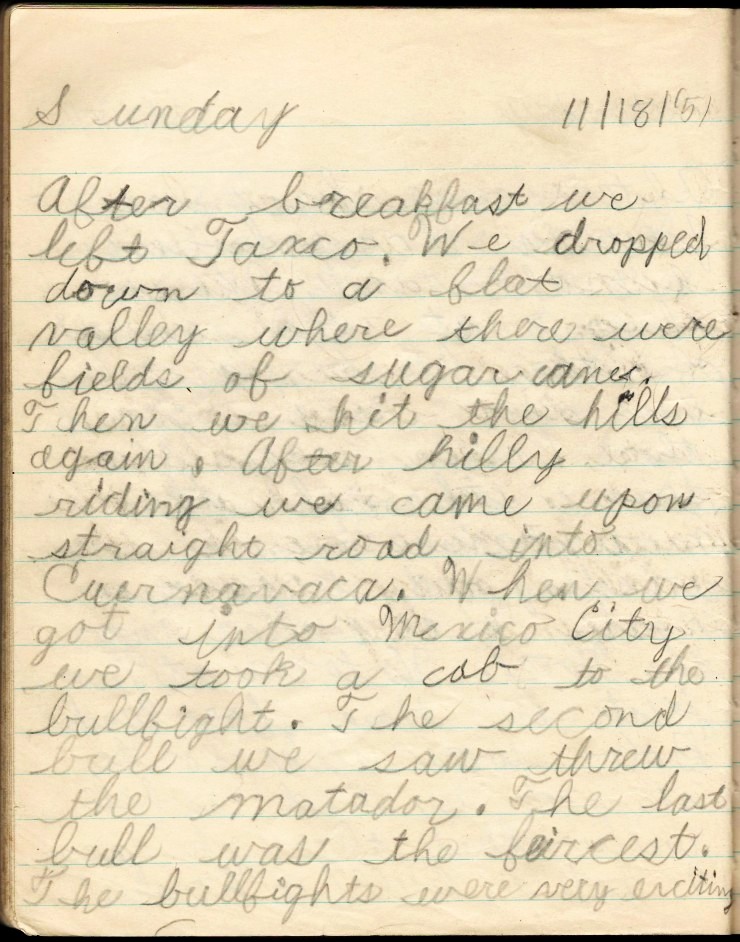 Sunday 11/18/'51
After breakfast we
left Taxco. We dropped
down to a flat
valley where there were
fields of sugar canes.
Then we hit the hills
again. After hilly
riding we came upon
straight road into
Cuernavaca. When we
got into Mexico City
we took a cab to the
bullfight. The second
bull we saw threw
the matador. The last
bull was the feircest.
The bullfights were very exciting